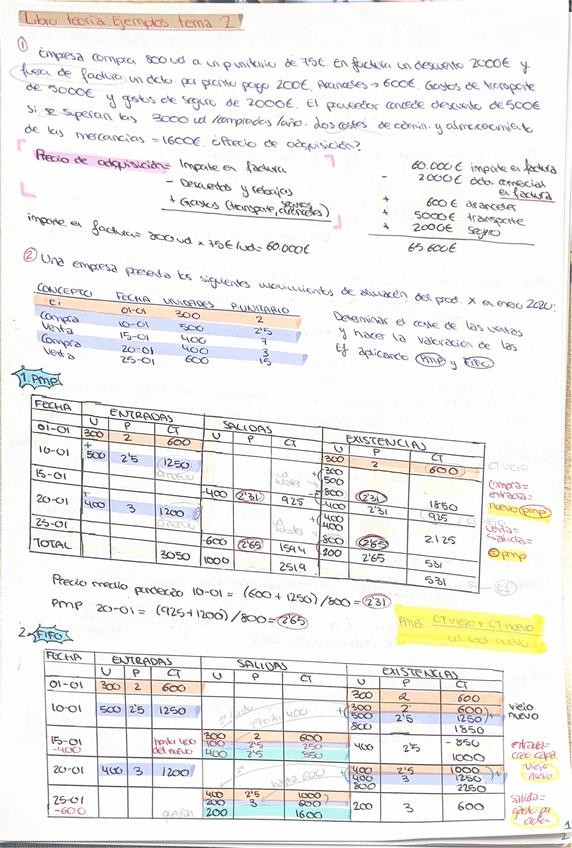 Libro teoría Ejemplos tema 2
① Empresa compra 800 ud a un p.unitario de 75€. En factura un descuento 2000€ y
fuera de factura un dcto por pronto pago 200€. Aranceles → 600€. Gastos de transporte
de 5000€ y gastos de seguro de 2000€. El proveedor concede descuento de 500€
si se superan las 3000 ud /compradas /año. Los costes de admin. y almacenamiento
de las mercancias = 1600€. ¿Precio de adquisición?
Precio de adquisición = Importe en factura
- Descuentos y rebajas
+ Gastos (transporte, seguros, aranceles)
60.000€ importe en factura
- 2000€ dto. comercial en factura
+ 600€ aranceles
+ 5000€ transporte
+ 2000€ seguro
65.600€
importe en factura = 800 ud x 75€/ud = 60.000€
② Una empresa presenta los siguientes movimientos de almacén del prod. X en enero 2020:
CONCEPTO FECHA UNIDADES P.UNITARIO
Ei 01-01 300 2
Compra 10-01 500 2'5
Venta 15-01 400 7
Compra 20-01 400 3
Venta 25-01 600 15
Determinar el coste de las ventas
y hacer la valoración de las
Ef aplicando PMP y FIFO
1. PMP
FECHA ENTRADAS SALIDAS EXISTENCIAS
U P CT U P CT U P CT
01-01 300 2 600 300 2 600
10-01 + 500 2'5 1250 +(300 500
800 2'31 1850
15-01 -400 2'31 925 -400 2'31 (925
20-01 + 400 3 1200 +(400 400
800 2'65 2125
25-01 -600 2'65 1594 200 2'65 531
TOTAL 3050 1000 2519 531
CT viejo
compra=
entrada=
nuevo pmp
venta=
salida=
pmp
Ef
Precio medio ponderado 10-01 = (600 + 1250) /800 = 2'31
PMP 20-01 = (925+1200) /800 = 2'65
PMP: CT VIEJO + CT NUEVO
2. FIFO
FECHA ENTRADAS SALIDAS EXISTENCIAS
U P CT U P CT U P CT
01-01 300 2 600 300 2 600
10-01 500 2'5 1250 +(300 2 600)+ viejo
500 2'5 1250 nuevo
800 1850
15-01 -400 hasta 400 del nuevo 300 2 600
100 2'5 250
400 2'5 850
400 2'5 - 850
1000
20-01 400 3 1200 +(400 2'5 1000)+
(400 3 1250
800 2250
25-01 -600 400 2'5 1000
200 3 600
200 1600
200 3 600
entrada=
creo capa
viejo
nuevo
salida=
gasto
1
2